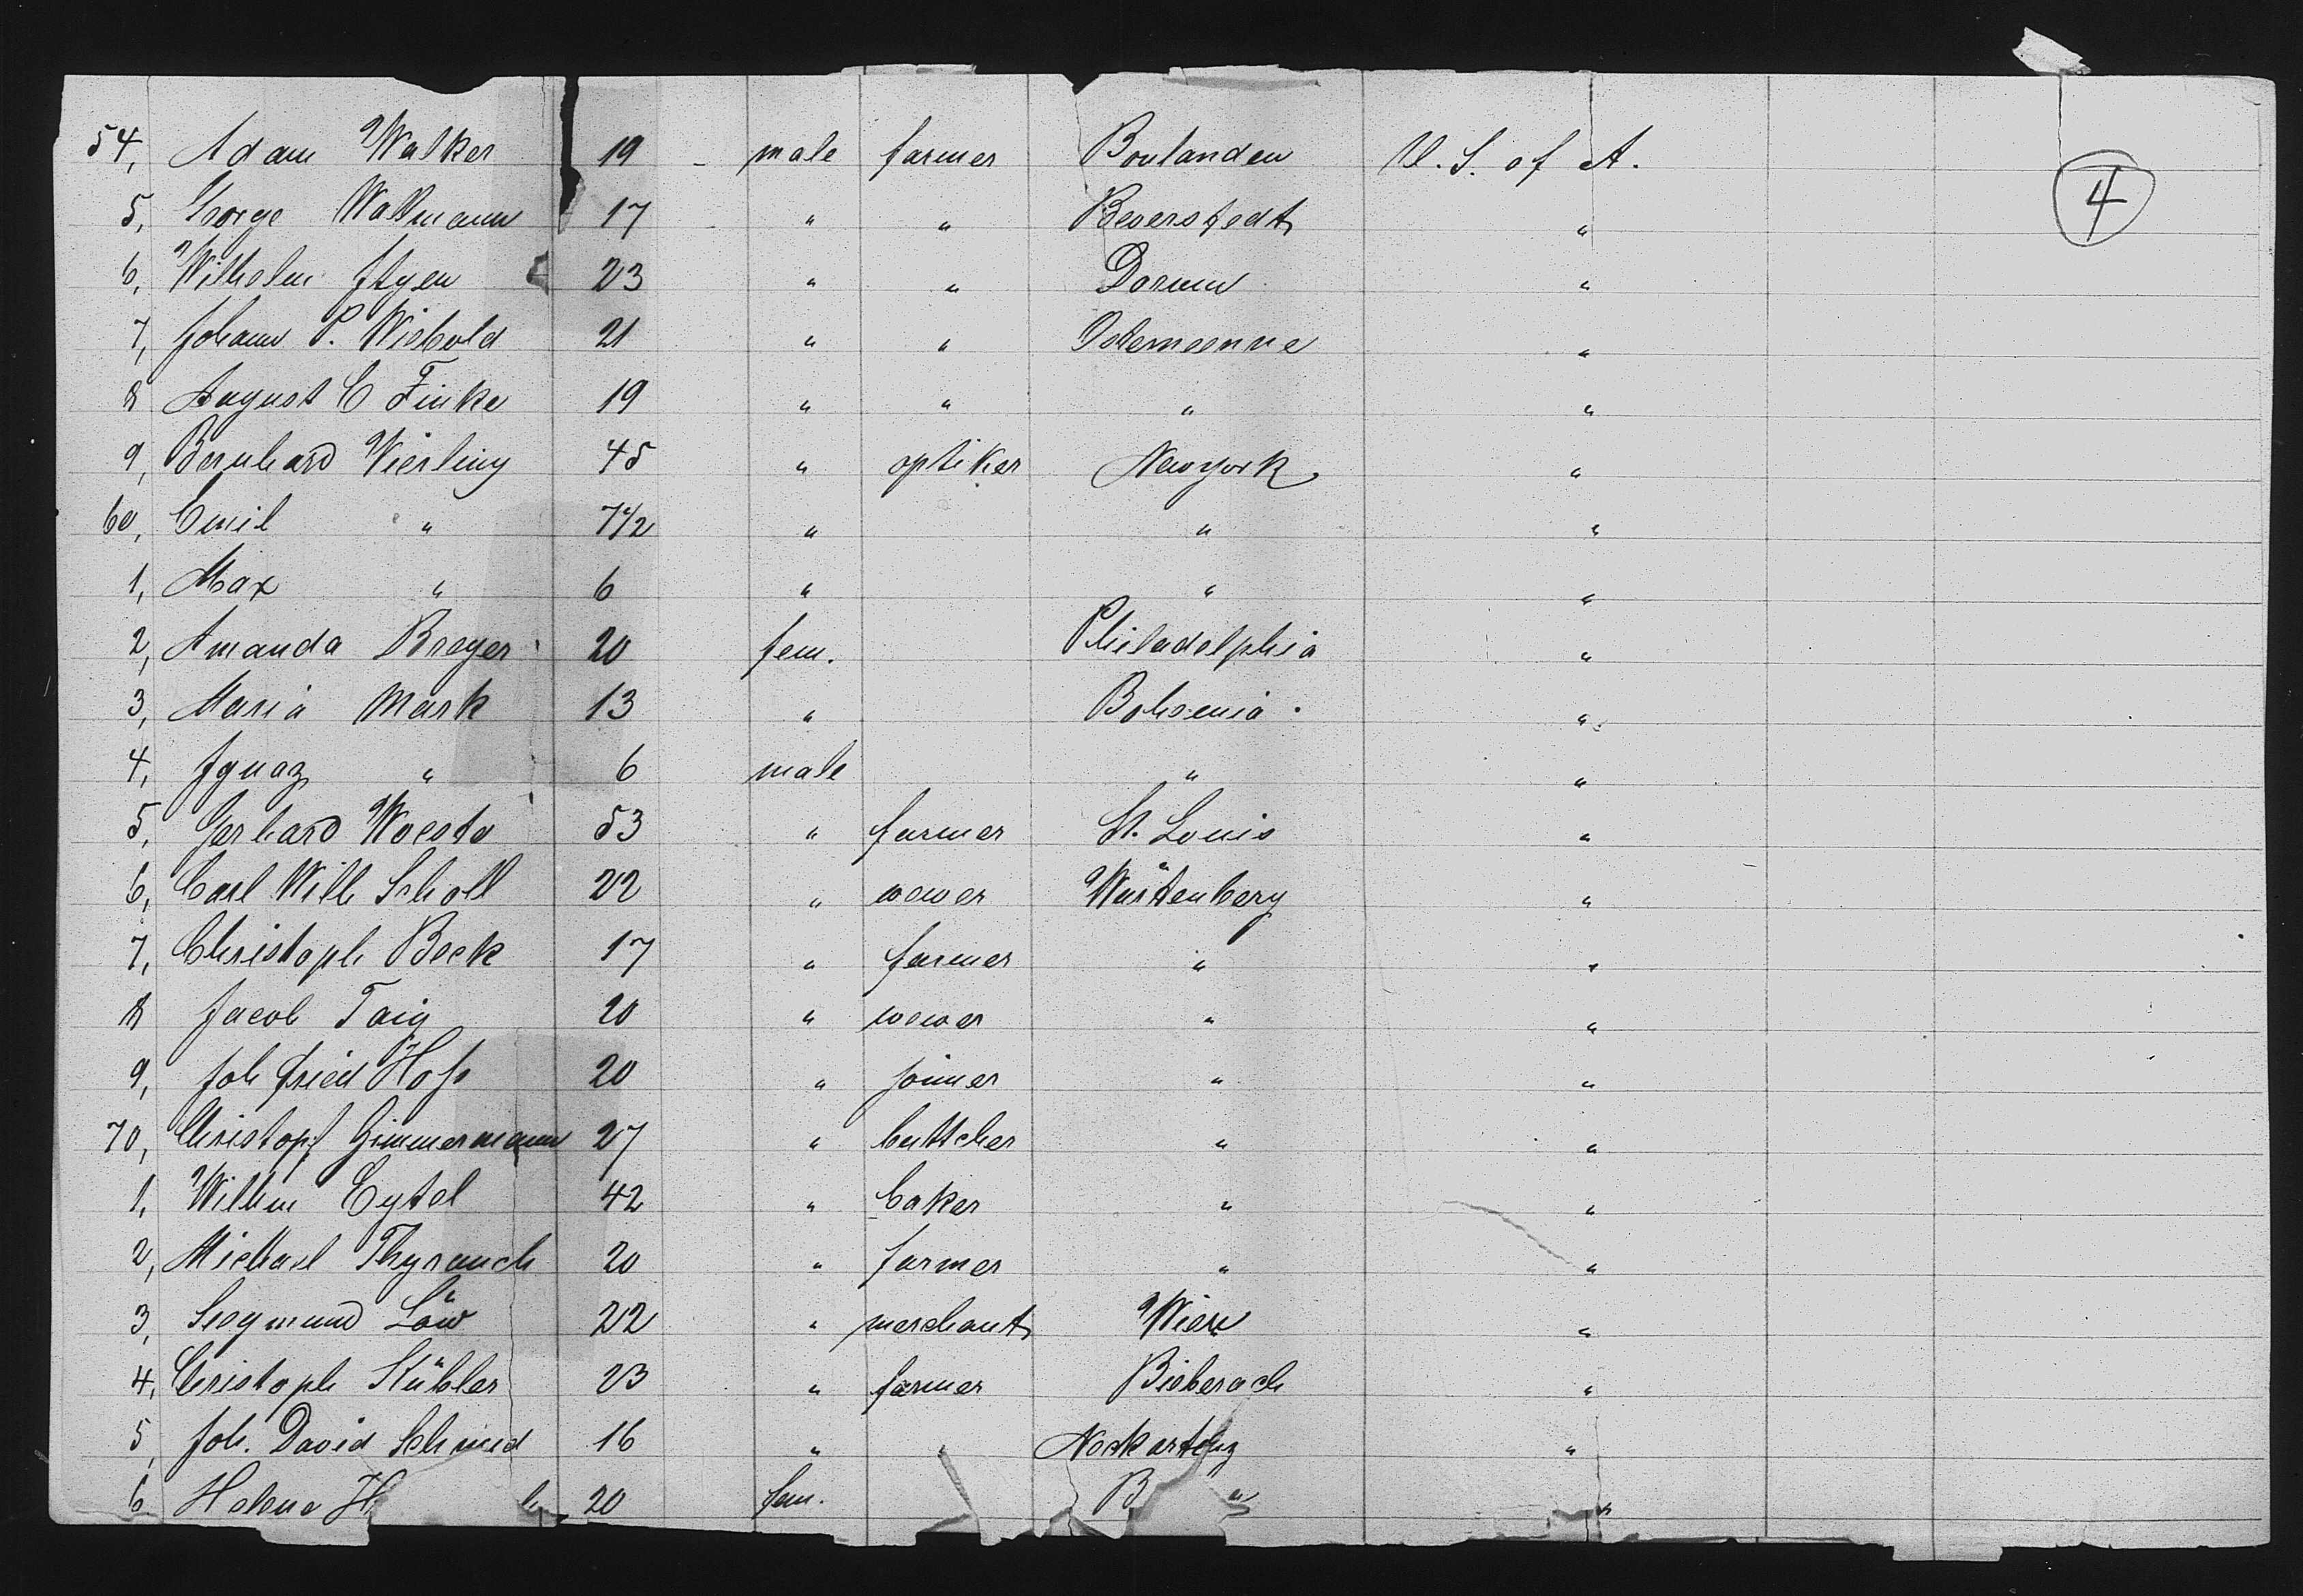 54, Adam Walker 19 male farmer Boulanden U. S. of A.
4
5, George Wattmann 17 " " Beverstedt "
6, Wilhelm Itgen 23 " " Dorum "
7, Johann P. Wiebold 21 " " "
8 August C Finke 19 " " " "
9, Bernhard Vierling 45 " optiker Newyork "
60, Emil " 7 1/2 " " "
1, Max " 6 " " "
2, Amanda Breyer 20 fem. Philadelphia "
3, Maria Mark 13 " Bohemia "
4, Ignaz " 6 male " "
5, Gerhard Woeste 53 " farmer St. Louis "
6, Carl Wilh Scholl 22 " wewer Würtenberg "
7, Christoph Beck 17 " farmer " "
8 Jacob Taig 20 " wewer " "
9, Joh Fried Hofs 20 " joiner " "
70, Christopf Zimmermann 27 " buttcher " "
1, Wilhm Eytel 42 " baker " "
2, Michael Thyrauch 20 " farmer " "
3, Siegmund Löw 22 " merchant Wien "
4, Christoph Kübler 23 " farmer Bieberach "
5, Joh. David Schmid 16 " " "
6 Helena 20 fem. "